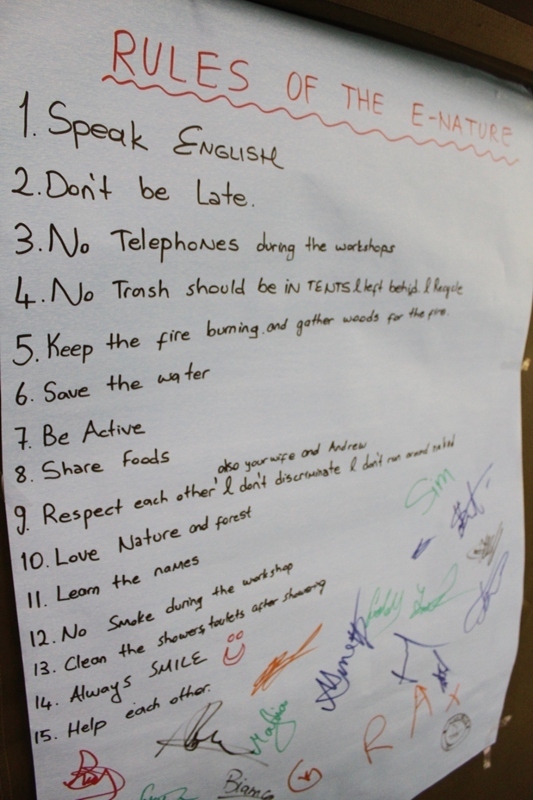 RULES OF THE E-NATURE
1. Speak ENGLISH
2. Don't be Late.
3. No Telephones during the workshops
4. No Trash should be in TENTS & left behind & Recycle
5. Keep the fire burning and gather woods for the fire.
6. Save the water
7. Be Active
8. Share foods
also your wife and Andrew
9. Respect each other & don't discriminate & don't run around naked
10. Love Nature and forest
11. Learn the names
12. No Smoke during the workshop
13. Clean the showers, toilets after showering
14. Always SMILE
15. Help each other.
Sim
Bianca
R A X